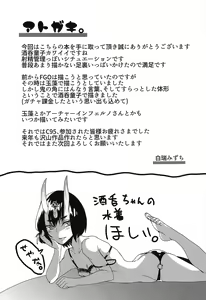 アトガキ。
今回はこちらの本を手に取って頂き誠にありがとうございます
酒呑童子カワイイですね
射精管理っぽいシチュエーションです
普段あまり描かない足裏いっぱいかけたので満足です
前からFGOは描こうと思っていたのですが
その時は玉藻で描こうとしていました
しかし鬼の角にはなんというか、そしてすらっとした体形
ということで酒呑童子で描きました
(ガチャ課金したという思いも込めて)
玉藻とかアーチャーインフェルノさんとかも
いつか描いてみたいです
それではC95、参加された皆様お疲れさまでした
来年も沢山作品作れたらと思います
それではまた次回よろしくお願いいたします
白瑞みずち
酒呑ちゃんの
水着
ほしい。